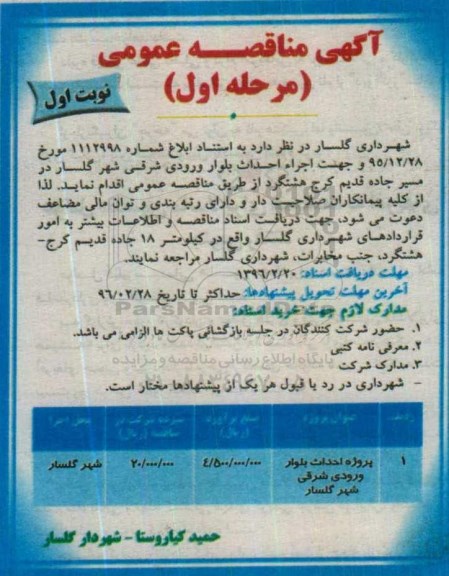 آگهی مناقصه عمومی
(مرحله اول)
نوبت اول
شهرداری گلسار در نظر دارد به استناد ابلاغ شماره ۱۱۱۲۹۹۸ مورخ
۹۵/۱۲/۲۸ و جهت اجراء احداث بلوار ورودی شرقی شهر گلسار در
مسیر جاده قدیم کرج هشتگرد از طریق مناقصه عمومی اقدام نماید. لذا
از کلیه پیمانکاران صلاحیت دار و دارای رتبه بندی و توان مالی مضاعف
دعوت می شود، جهت دریافت اسناد مناقصه و اطلاعات بیشتر به امور
قراردادهای شهرداری گلسار واقع در کیلومتر ۱۸ جاده قدیم کرج-
هشتگرد، جنب مخابرات، شهرداری گلسار مراجعه نمایند.
مهلت دریافت اسناد: ۱۳۹۶/۲/۲۰
آخرین مهلت تحویل پیشنهادها: حداکثر تا تاریخ ۹۶/۰۲/۲۸
مدارک لازم جهت خرید اسناد:
۱. حضور شرکت کنندگان در جلسه بازگشائی پاکت ها الزامی می باشد.
۲. معرفی نامه کتبی
۳. مدارک شرکت
- شهرداری در رد یا قبول هر یک از پیشنهادها مختار است.
ردیف عنوان پروژه مبلغ برآورد (ریال) محل اجرا
۱ پروژه احداث بلوار ورودی شرقی شهر گلسار ۴/۵۰۰/۰۰۰/۰۰۰ ۲۰/۰۰۰/۰۰۰ شهر گلسار
حمید کیاروستا - شهردار گلسار
پایگاه اطلاع رسانی مناقصه و مزایده